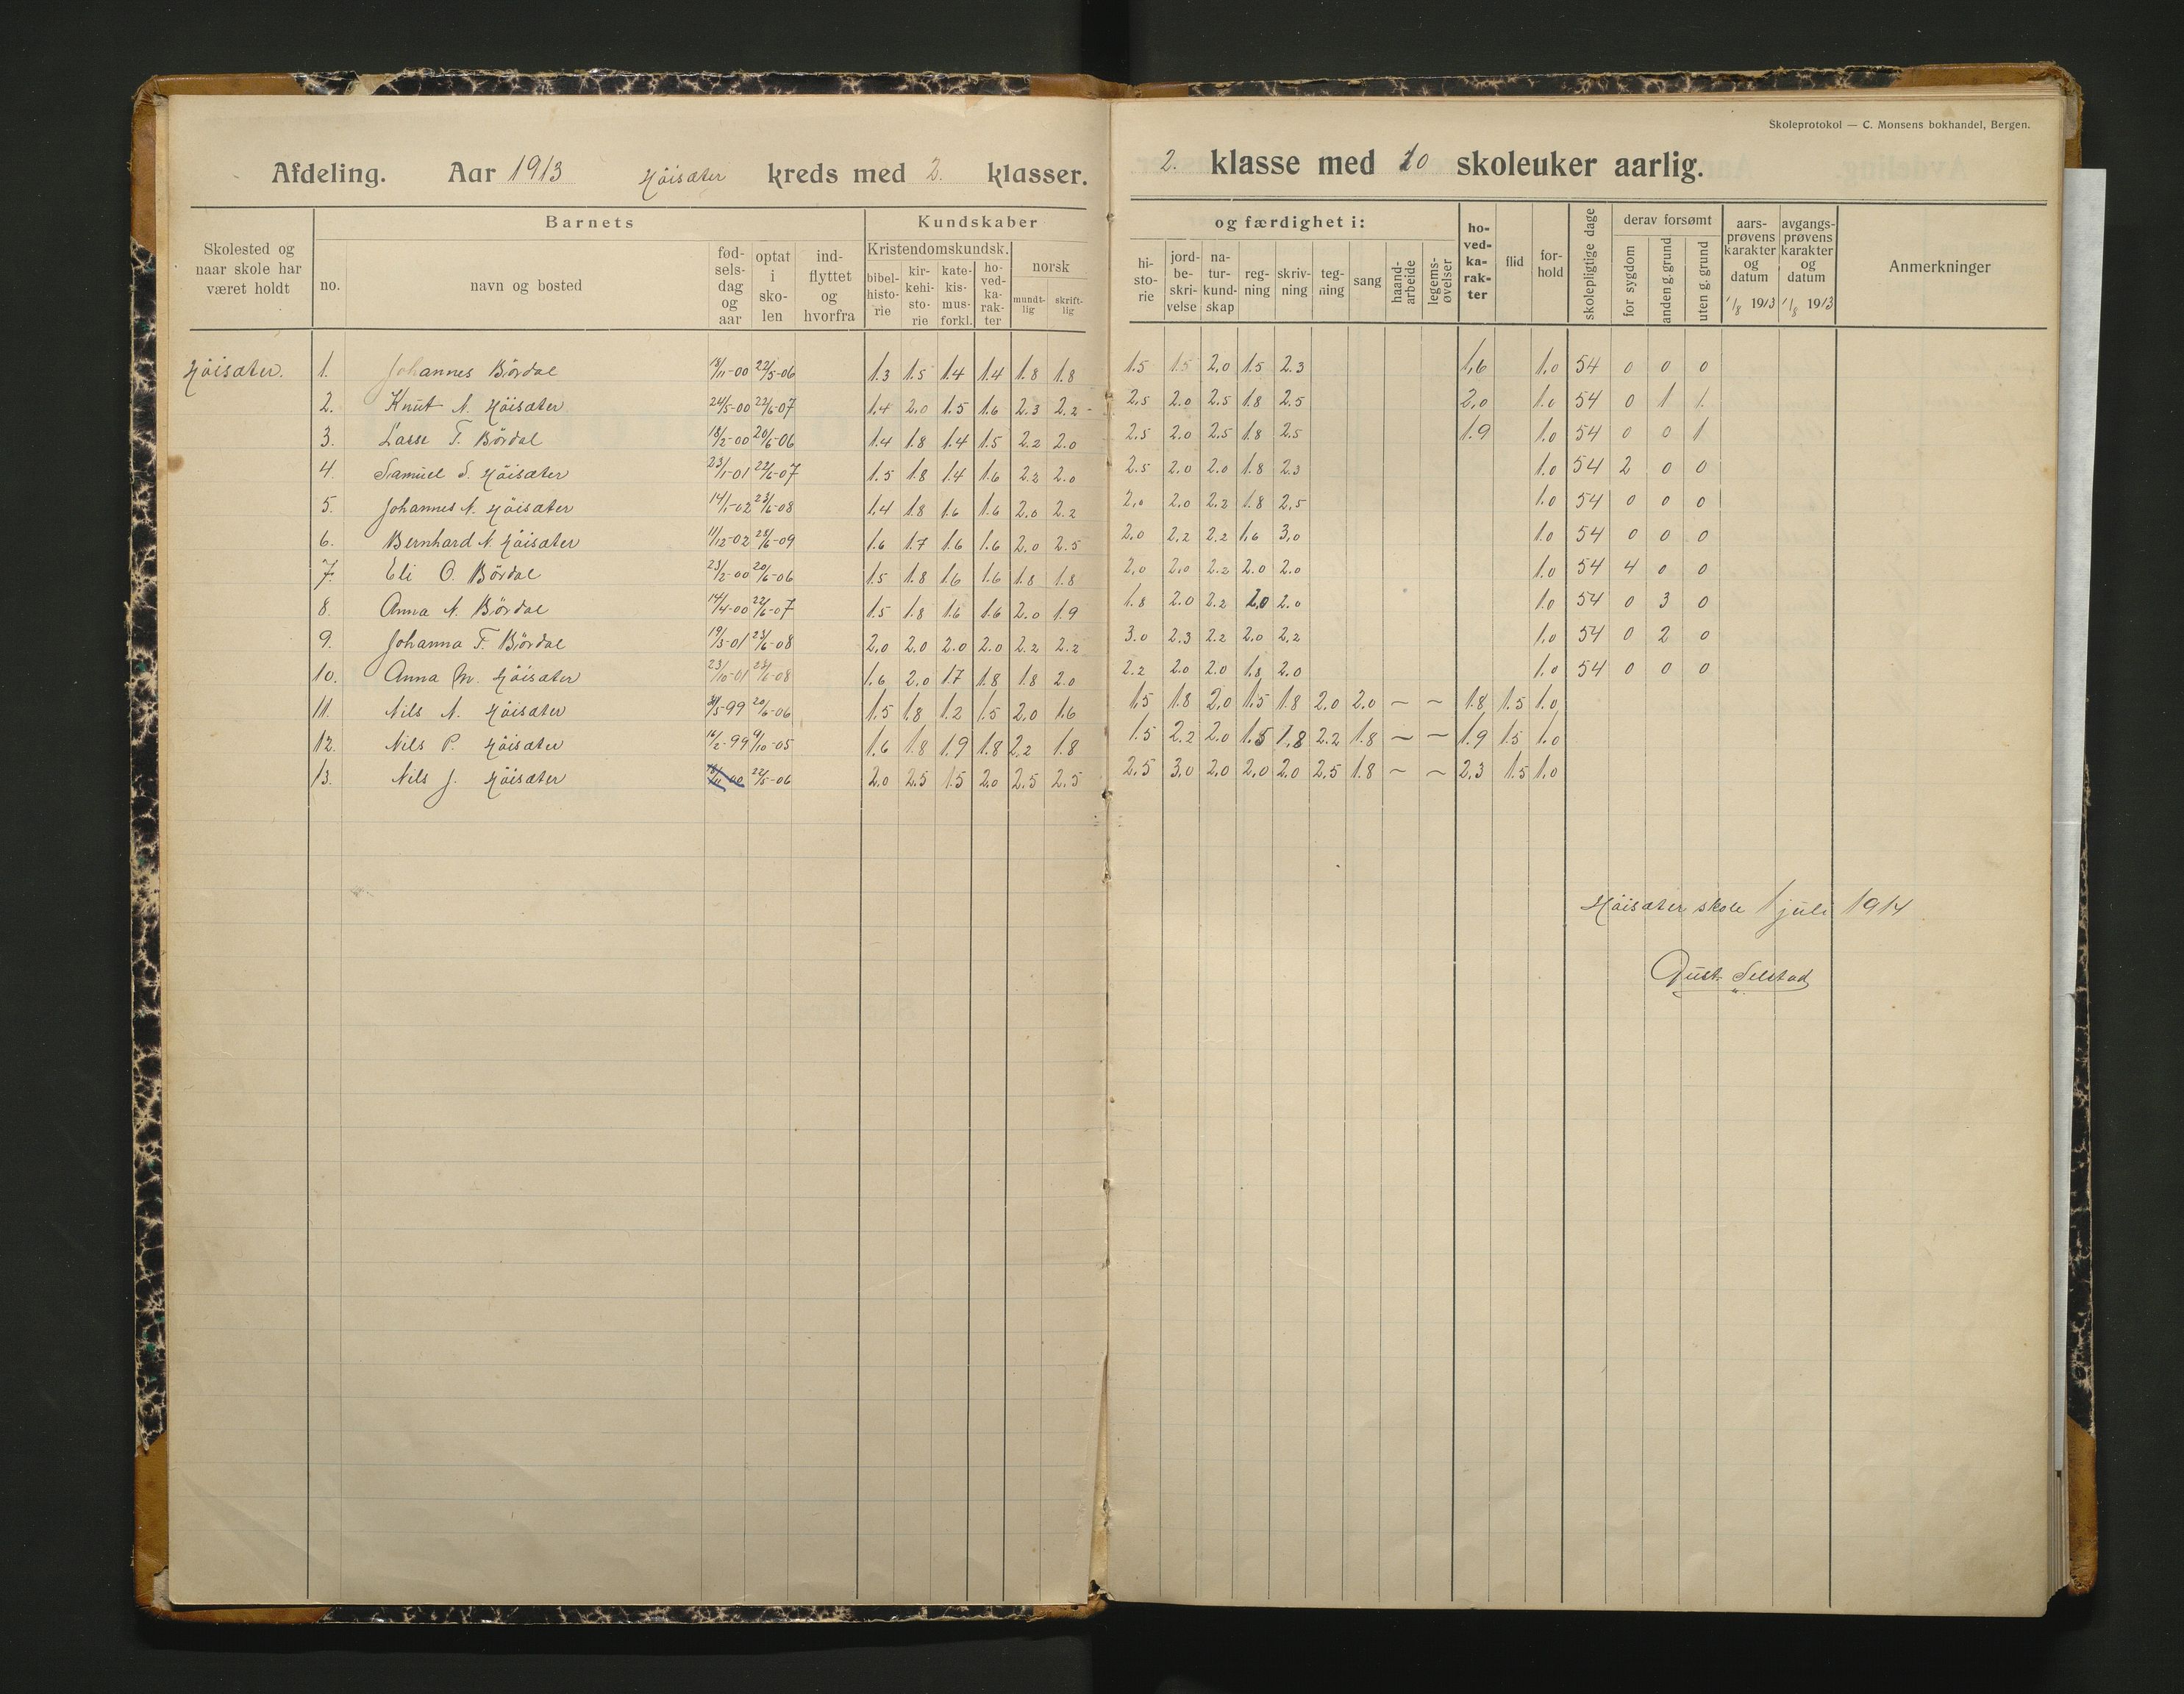 Skoleprotokol — C. Monsens bokhandel, Bergen.
Afdeling. Aar 1913 Höisæter kreds med 2. klasser. 2. klasse med 20 skoleuker aarlig.
Skolested og naar skole har været holdt
Barnets
no.
navn og bosted
fødselsdag og aar
optat i skolen
indflyttet og hvorfra
Kundskaber
Kristendomskundsk.
bibelhistorie
kirkehistorie
katekismusforkl.
hovedkarakter
norsk
mundtlig
skriftlig
og færdighet i:
historie
jordbeskrivelse
naturkundskap
regning
skrivning
tegning
sang
haandarbeide
legemsøvelser
hovedkarakter
flid
forhold
skolepligtige dage
derav forsømt
for sygdom
anden g. grund
uten g. grund
aarsprøvens karakter og datum
1/8 1913
avgangsprøvens karakter og datum
1/8 1913
Anmerkninger
Höisæter. 1. Johannes Bördal 18/11-00 22/5-06 1.3 1.5 1.4 1.4 1.8 1.8 1.5 1.5 2,0 1.5 2.3 1,6 1.0 54 0 0 0
2. Knut N. Höisæter 24/5-00 22/6-07 1.4 2.0 1.5 1.6 2.3 2.2 2,5 2.0 2.5 1.8 2.5 2,0 1.0 54 0 1 1
3. Lasse T. Bördal 18/2-00 20/6-06 1.4 1.8 1.4 1.5 2.2 2.0 2,5 2.0 2,5 1.8 2.5 1.9 1.0 54 0 0 1
4. Samuel S. Höisæter 23/1-01 22/6-07 1.5 1.8 1.4 1.6 2.2 2.0 2.5 2.0 2.0 1.8 2.3 1.0 54 2 0 0
5. Johannes N. Höisæter 14/1-02 23/6-08 1.4 1.8 1.6 1.6 2,0 2.2 2,0 2,0 2,2 1.8 2,5 1.0 54 0 0 0
6. Bernhard N. Höisæter 11/12-02 28/6-09 1.6 1.7 1.6 1.6 2.0 2.5 2,0 2,2 2.2 1,6 3,0 1.0 54 0 0 0
7. Eli O. Bördal 23/2-00 20/6-06 1.5 1.8 1.6 1.6 1.8 1.8 2,0 2.0 2.2 2.0 2.0 1.0 54 4 0 0
8. Anna N. Bördal 14/4-00 22/6-07 1.5 1.8 1.6 1.6 2.0 1.9 1.8 2.0 2.2 2.0 2.0 1.0 54 0 3 0
9. Johanna T. Bördal 19/3-01 23/6-08 2,0 2,0 2.0 2,0 2.2 2.2 3.0 2.3 2.2 2.0 2,2 1.0 54 0 2 0
10. Anna M. Höisæter 23/10-01 23/6-08 1.6 2.0 1.7 1.8 1.8 2.0 2.2 2.0 2.0 1.8 2.0 1.0 54 0 0 0
11. Nils N. Höisæter /5-99 20/6-06 1.5 1.8 1.2 1.5 2,0 1.6 1,5 1.8 2,0 1.5 1.8 2.0 2.0 ~ ~ 1.8 1.5 1.0
12. Nils P. Höisæter 16/2-99 9/10-05 1.6 1.8 1.9 1.8 2,2 1.8 1.5 2.2 2.0 1.5 1,8 2.2 1.8 ~ ~ 1.9 1.5 1.0
13. Nils J. Höisæter 22/5-06 2,0 2.5 1.5 2,0 2,5 2,5 2,5 3,0 2,0 2,0 2,0 2,5 1.8 ~ ~ 2,3 1.5 1.0
Höisæter skole 1 juli 1914
Gust. Selstad